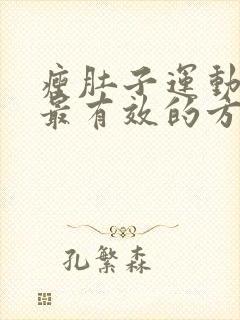 瘦肚子運動
最有效的方
孔繁森